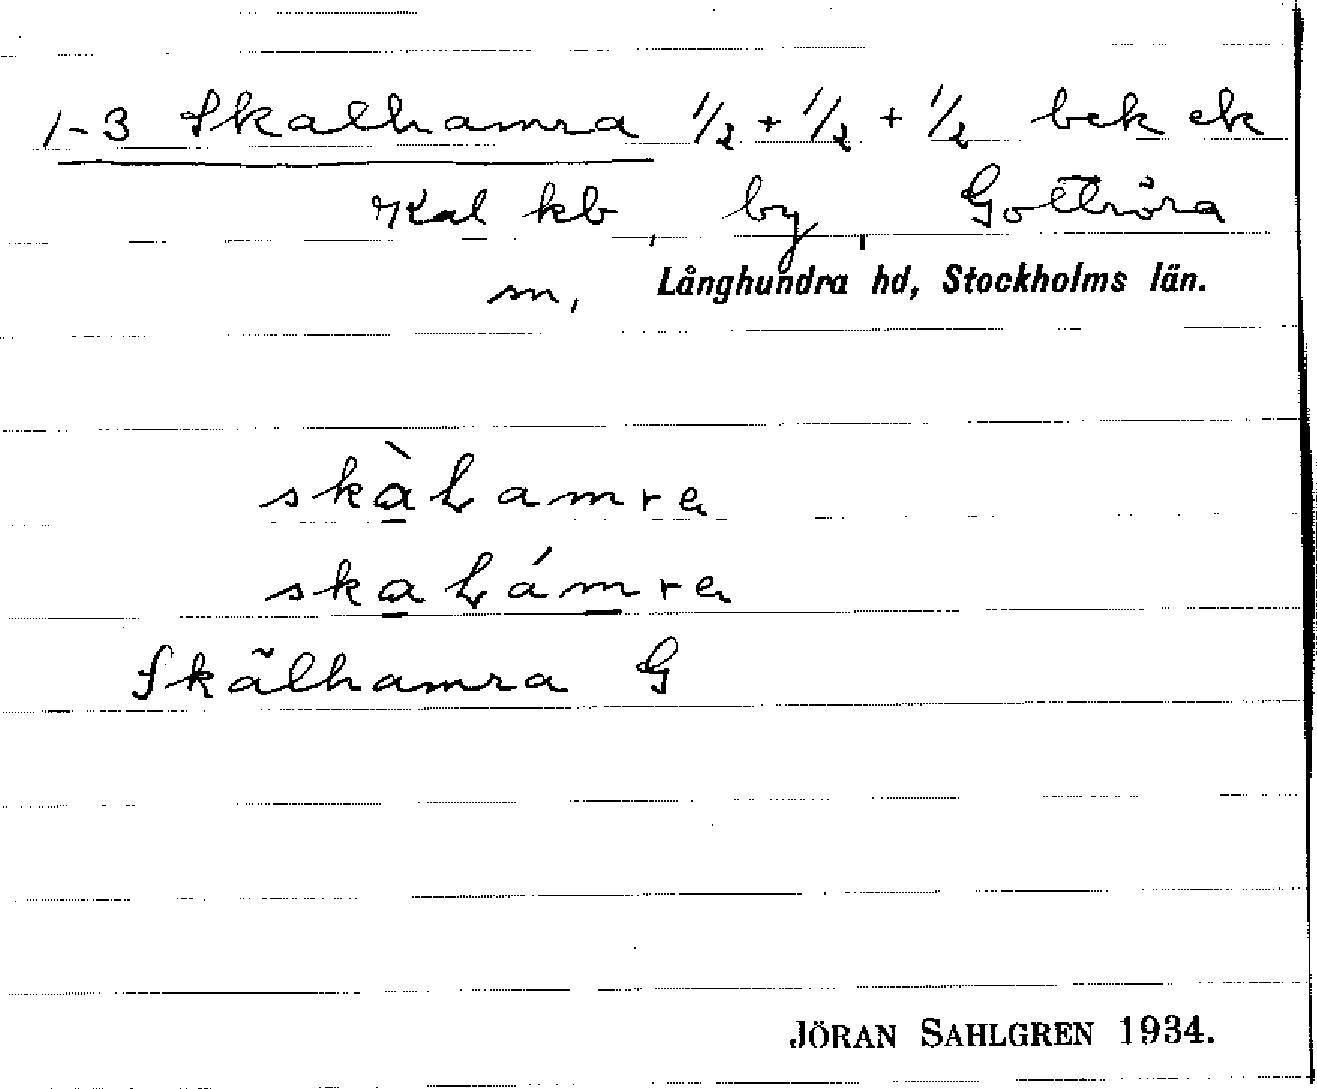 1-3 Skalhamra 1/2 + 1/2 + 1/2 bek ek
Kal kb, by, Gottröra
sn, Långhundra hd, Stockholms län.
skàLamra
skaLámra
Skãlhamra G
JÖRAN SAHLGREN 1934.